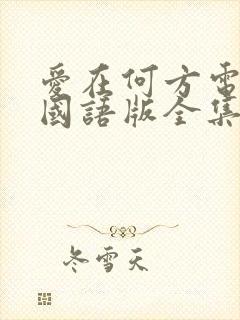 愛在何方電
國語版全集
冬雪天